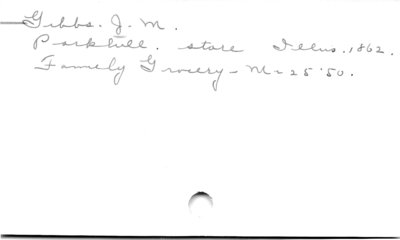 Gibbs. J. M.
Parkhill. store Illus. 1862.
Family Grocery - M = 25 '50.